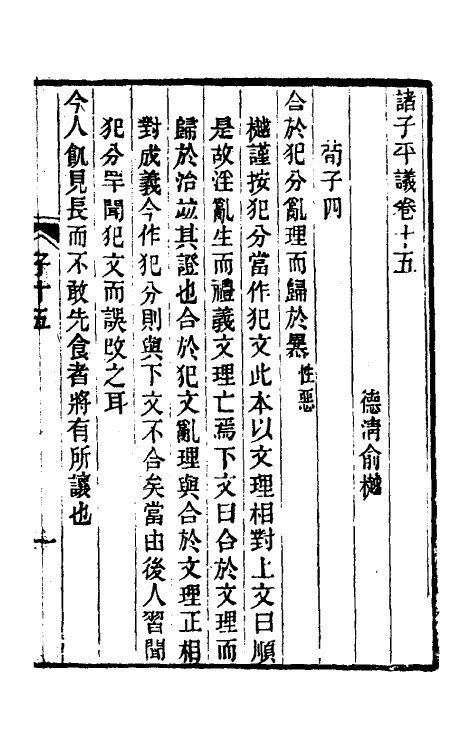 諸子平議卷十五
德清俞樾
荀子四
合於犯分亂理而歸於暴性惡
樾謹按犯分當作犯文此本以文理相對上文曰順
是故淫亂生而禮義文理亡焉下文曰合於文理而
歸於治竝其證也合於犯文亂理與合於文理正相
對成義今作犯分則與下文不合矣當由後人習聞
犯分罕聞犯文而誤改之耳
今人飢見長而不敢先食者將有所讓也
子十五
一